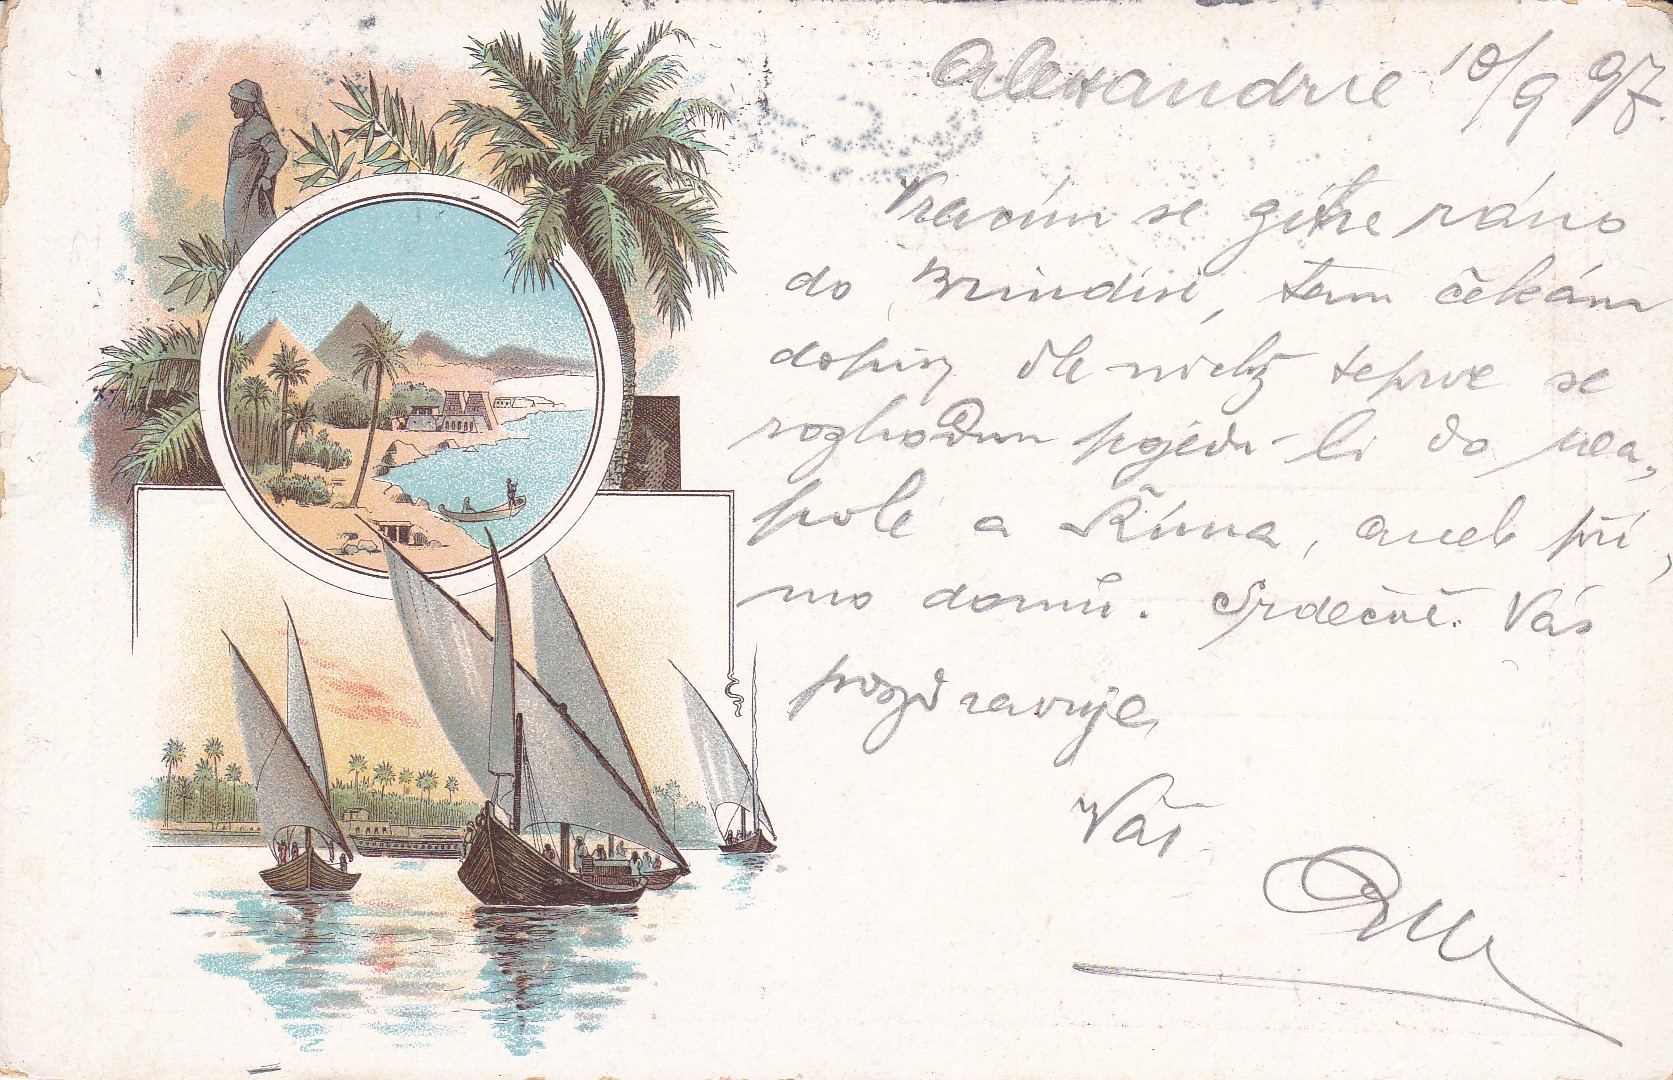 Alexandrie 10/9 97.
Vracím se gitre ráno
do Brindisi, tam čekám
dopisy dle nichž teprve se
rozhodnu pojedu-li do Nea-
pole a Říma, aneb pří-
mo domů. Srdečně Vás
pozdravuje
Váš